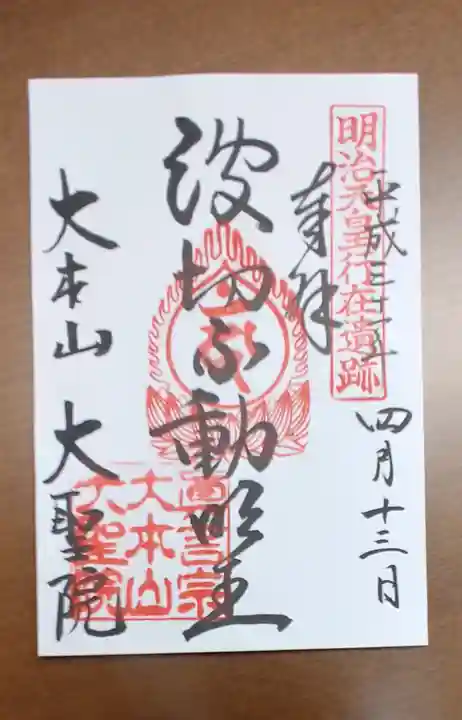 明治天皇行在遺跡
平成三十
四月十三日
奉拝
波切不動明王
真言宗
大本山
大聖院
大本山 大聖院